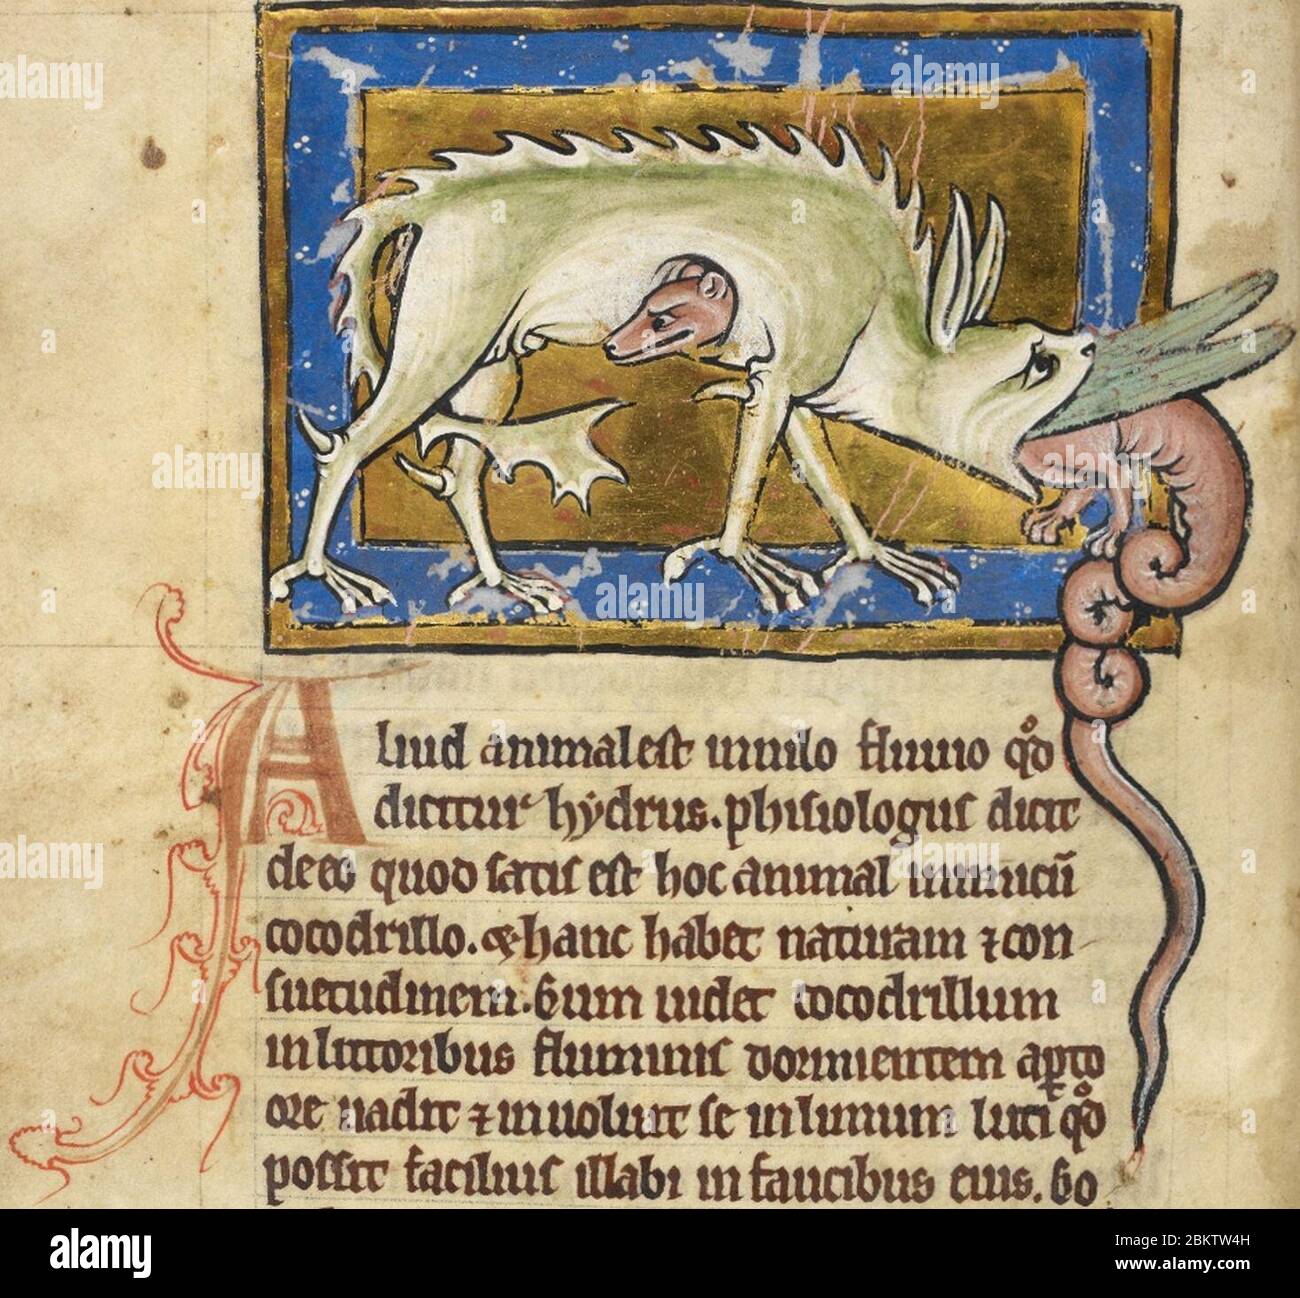 Aliud animal est in nilo fluuio qd
dicitur hydrus. phisiologus dicit
de eo quod satis est hoc animal inimicū
cocodrillo. & hanc habet naturam ⁊ con
suetudinem. Cum uidet cocodrillum
in littoribus fluminis dormientem apto
ore uadit ⁊ inuoluit se in limum luti qd
possit facilius illabi in faucibus eius. Co
alamy
Image ID: 2BKTW4H
www.alamy.com